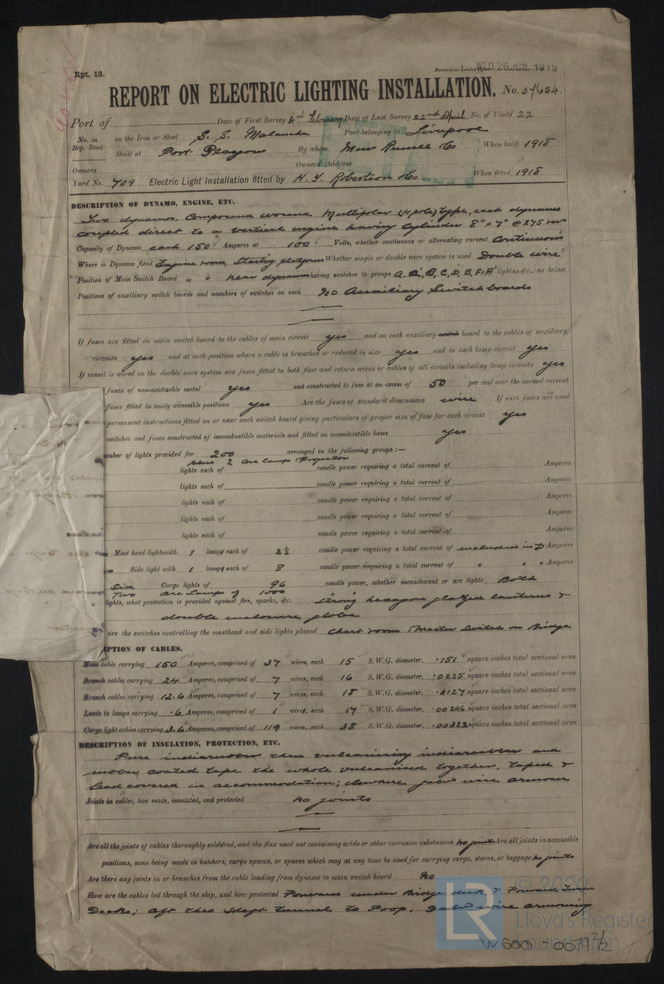 Rpt. 13.
WED. 26 JUN. 1918
REPORT ON ELECTRIC LIGHTING INSTALLATION. No. 37654.
Port of Date of First Survey 4th February Date of Last Survey 22nd April No. of Visits 22
No. in Reg. Book on the Iron or Steel S.S. Port belonging to Liverpool
Built at Port Glasgow By whom Mess Russell & Co When built 1918
Owners Owners' Address
Yard No. 709 Electric Light Installation fitted by H. T. Robertson & Co When fitted 1918
DESCRIPTION OF DYNAMO, ENGINE, ETC.
Two dynamos. Compound wound Multipolar (4 pole) type, each dynamo
coupled direct to a vertical engine having cylinder 8" x 7" @ 275 rev
Capacity of Dynamo each 150 Amperes at 100 Volts, whether continuous or alternating current Continuous
Where is Dynamo fixed Engine room Starting platform Whether single or double wire system is used Double wire
Position of Main Switch Board near dynamo having switches to groups A, B, C, D, E, F, lights &c., as below
Positions of auxiliary switch boards and numbers of switches on each No Auxiliary Switchboards
If fuses are fitted on main switch board to the cables of main circuit yes and on each auxiliary switch board to the cables of auxiliary
circuits yes and at each position where a cable is branched or reduced in size yes and to each lamp circuit yes
If vessel is wired on the double wire system are fuses fitted to both flow and return wires or cables of all circuits including lamp circuits yes
fuses of non-oxidizable metal yes and constructed to fuse at an excess of 50 per cent over the normal current
fuses fitted in easily accessible positions yes Are the fuses of standard dimensions wire If wire fuses are used
permanent instructions fitted on or near each switch board giving particulars of proper size of fuse for each circuit yes
switches and fuses constructed of incombustible materials and fitted on incombustible bases yes
number of lights provided for 200 arranged in the following groups:—
plus 2 arc lamps & Projector
lights each of candle power requiring a total current of Amperes
lights each of candle power requiring a total current of Amperes
lights each of candle power requiring a total current of Amperes
lights each of candle power requiring a total current of Amperes
lights each of candle power requiring a total current of Amperes
Mast head light with 1 lamps each of candle power requiring a total current of included in D Amperes
Side light with 1 lamps each of 8 candle power requiring a total current of " " Amperes
Cargo lights of 96 candle power, whether incandescent or arc lights Both
Two Arc Lamps of 1000
lights, what protection is provided against fire, sparks, &c. Strong hexagon glazed lanterns &
double enclosure globes
are the switches controlling the masthead and side lights placed Chart room & Master Switch on Bridge
DESCRIPTION OF CABLES.
Main cable carrying 150 Amperes, comprised of 37 wires, each 15 S.W.G. diameter, .151 square inches total sectional area
Branch cables carrying 24 Amperes, comprised of 7 wires, each 16 S.W.G. diameter, .0225 square inches total sectional area
Branch cables carrying 12.6 Amperes, comprised of 7 wires, each 18 S.W.G. diameter, .0127 square inches total sectional area
Leads to lamps carrying .6 Amperes, comprised of 1 wires, each 17 S.W.G. diameter, .00246 square inches total sectional area
Cargo light cables carrying 3.6 Amperes, comprised of 119 wires, each 38 S.W.G. diameter, .00322 square inches total sectional area
DESCRIPTION OF INSULATION, PROTECTION, ETC.
Pure indiarubber then vulcanising indiarubber and
rubber coated tape the whole vulcanised together, taped &
lead covered in accommodation; elsewhere galvd wire armour
Joints in cables, how made, insulated, and protected No joints
Are all the joints of cables thoroughly soldered, and the flux used not containing acids or other corrosive substances no joints Are all joints in accessible
positions, none being made in bunkers, cargo spaces, or spaces which may at any time be used for carrying cargo, stores, or baggage no joints
Are there any joints in or branches from the cable leading from dynamo to main switch board No
How are the cables led through the ship, and how protected Forward under Bridge deck & Forward Tween
Decks; aft thro shaft tunnel to Poop, Galvd wire armoring
LR
© 2020
Lloyd's Register
Foundation
W600-0079 1/2